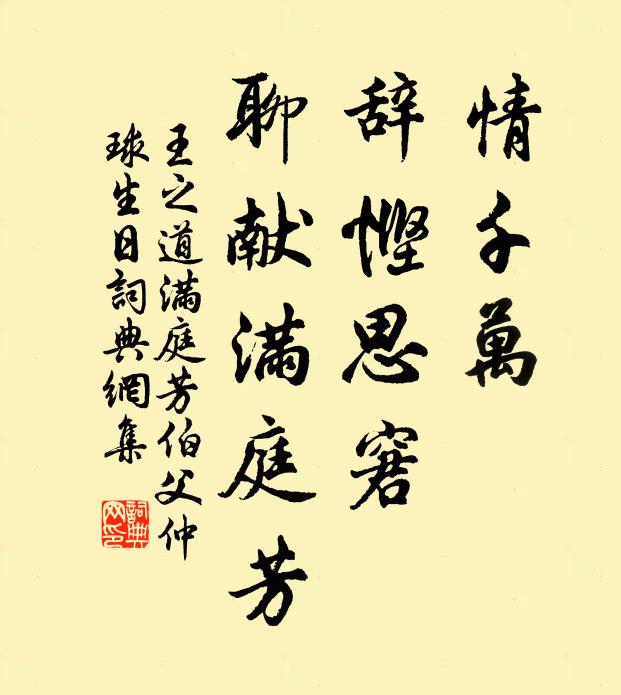 情千萬
辞慳思窘
聊献滿庭芳
王之道滿庭芳伯父仲
球生日詞典網集
詞典
网印